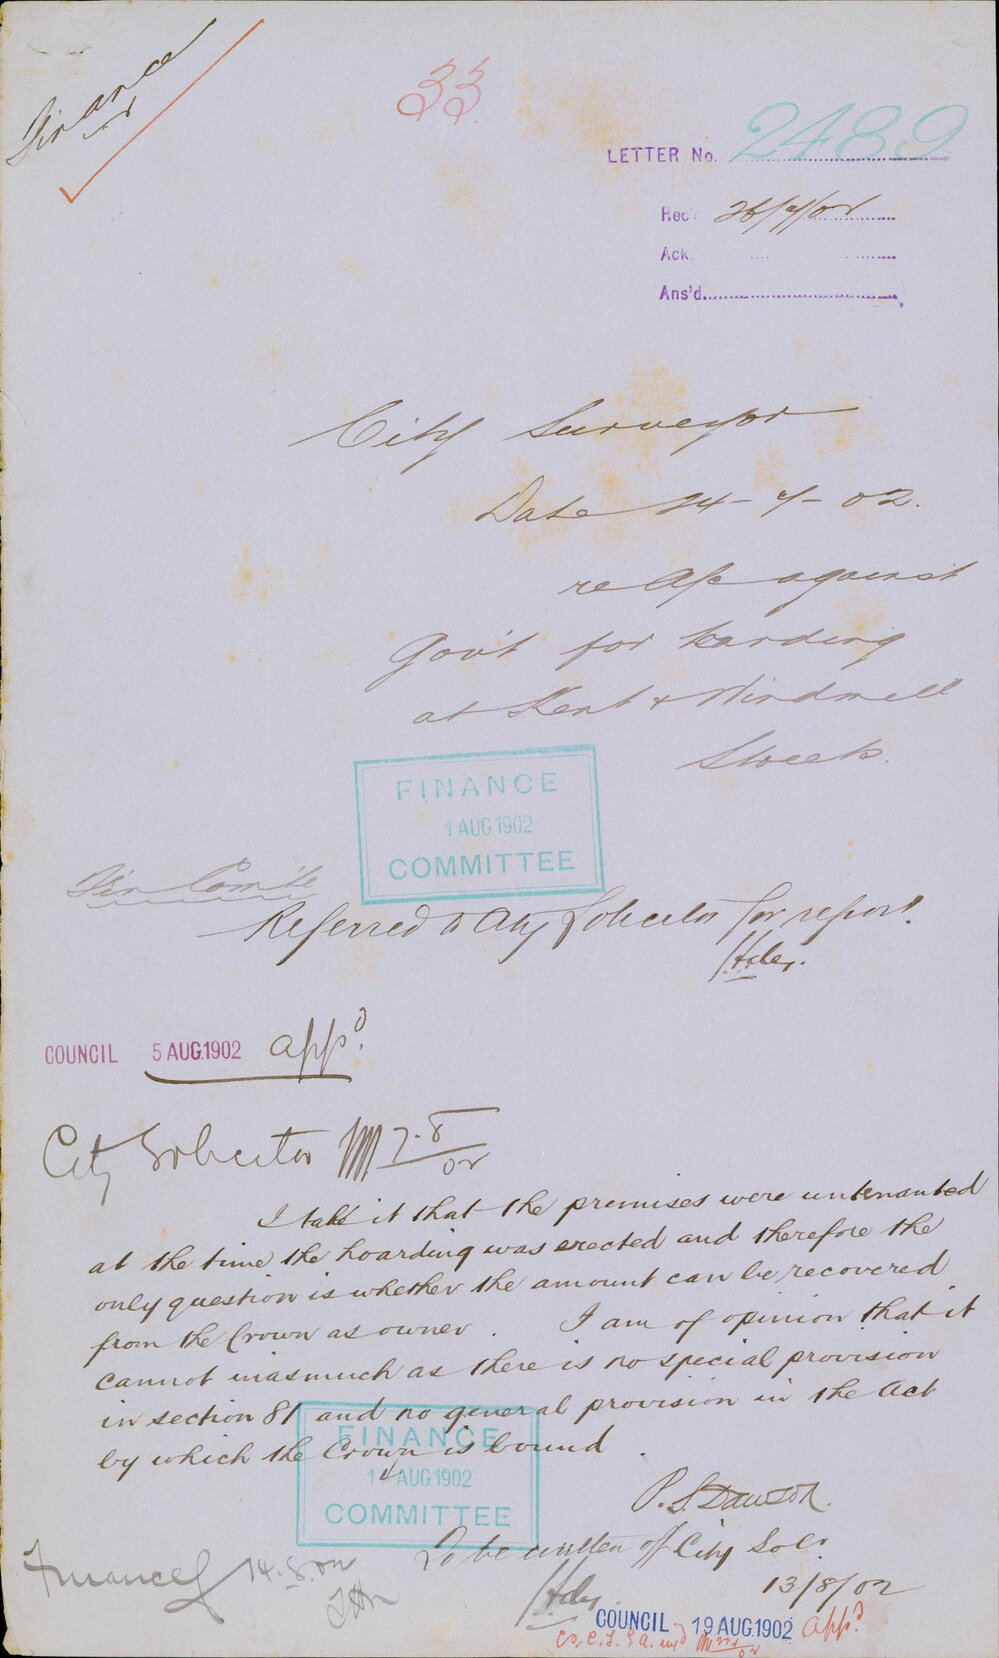 Finance
33
LETTER No. 2489
Rec 26/7/02
Ack.
Ans'd.
City Surveyor
Date 24-7-02.
re A/c against
Gov't for hoarding
at Kent & Windmill
Streets.
FINANCE
1 AUG.1902
COMMITTEE
Fin Com'te
Referred to City Solicitor for report.
COUNCIL 5 AUG.1902 appd.
City Solicitor 7.8/02
I take it that the premises were untenanted
at the time the hoarding was erected and therefore the
only question is whether the amount can be recovered
from the Crown as owner. I am of opinion that it
cannot inasmuch as there is no special provision
in section 81 and no general provision in the Act
by which the Crown is bound.
FINANCE
14 AUG 1902
COMMITTEE
P. S. Dawson.
City Solr.
13/8/02
To be written off
Finance 14.8.02
COUNCIL 19 AUG.1902 appd.